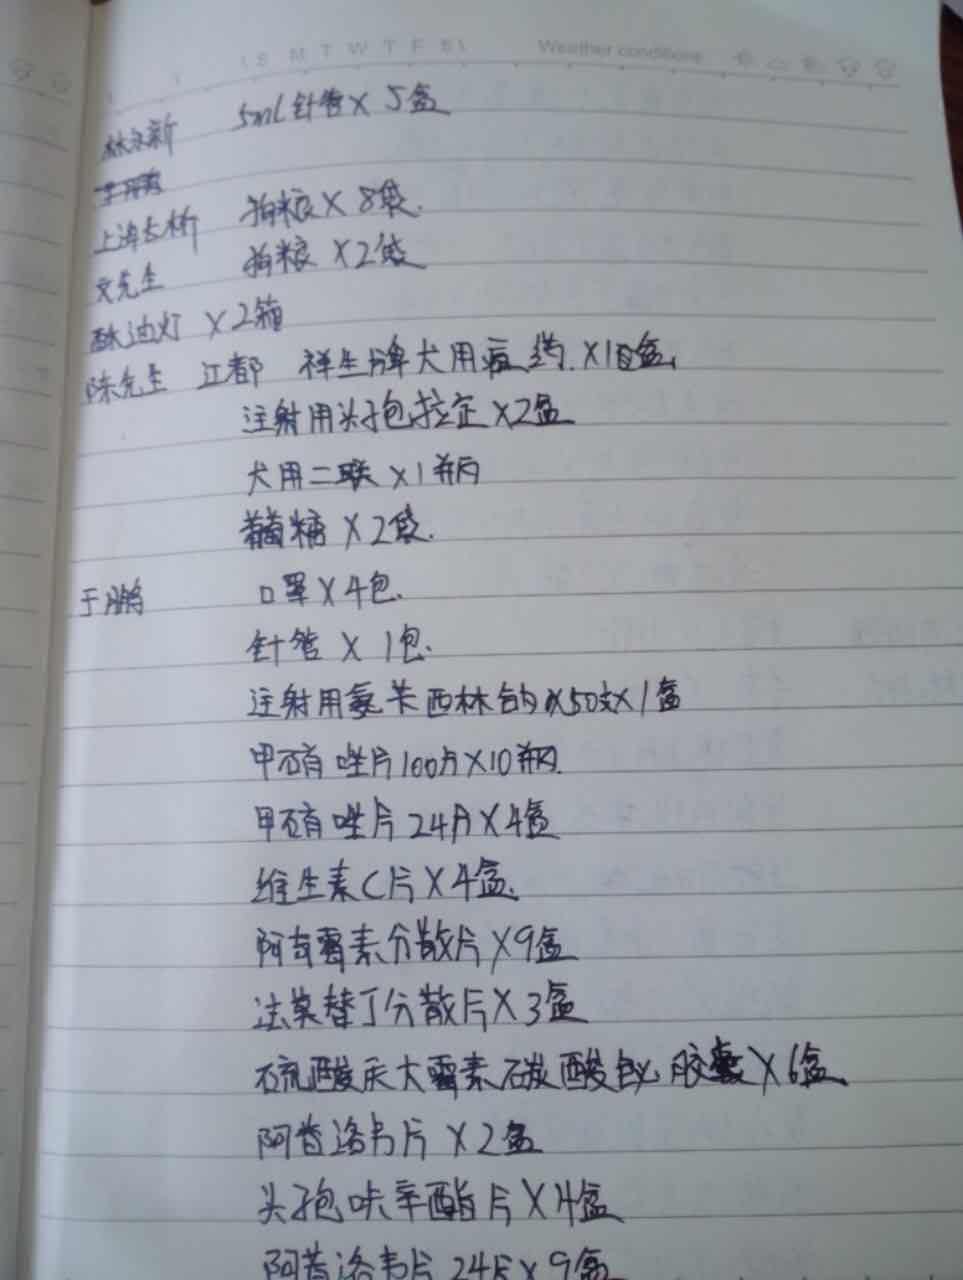 S M T W T F S Weather conditions
林永新 5ml针管×5盒
上海大桥 狗粮×8袋.
文先生 狗粮×2袋
酥油灯×2箱
陈先生 江都 祥生牌犬用 药.×10盒.
注射用头孢拉定×2盒
犬用二联×1瓶
葡萄糖×2袋.
于鹏 口罩×4包.
针管×1包.
注射用氨苄西林钠×50支×1盒
甲硝唑片100片×10瓶.
甲硝唑片24片×4盒
维生素C片×4盒.
阿奇霉素分散片×9盒
法莫替丁分散片×3盒
硫酸庆大霉素碳酸铋胶囊×6盒.
阿昔洛韦片×2盒
头孢呋辛酯片×4盒
阿昔洛韦片24片×9盒